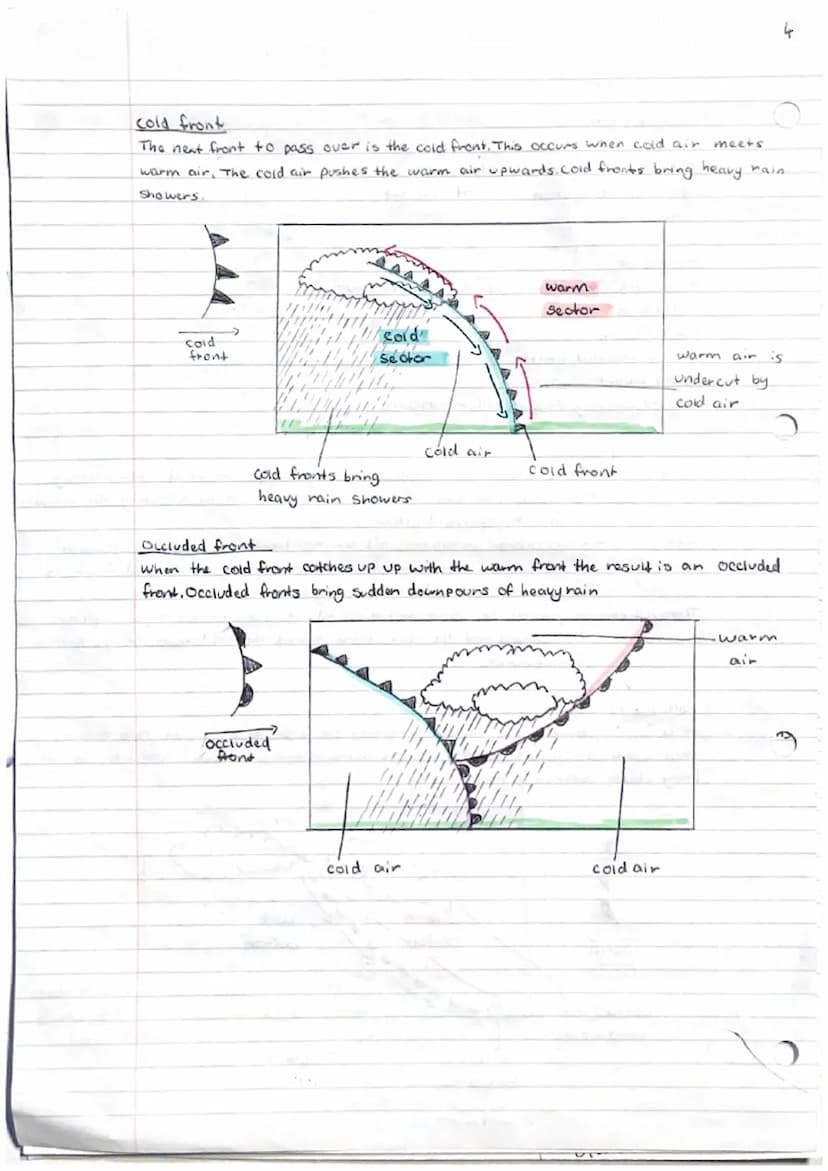 4
Cold front
The next front to pass over is the cold front. This occurs when cold air meets
warm air. The cold air pushes the warm air upwards. Cold fronts bring heavy rain
showers.
warm
sector
cold
sector
cold
front
warm air is
undercut by
cold air
cold air
cold front
cold fronts bring
heavy rain showers
Occluded front
When the cold front catches up up with the warm front the result is an occluded
front. Occluded fronts bring sudden downpours of heavy rain
warm
air
occluded
front
cold air
cold air